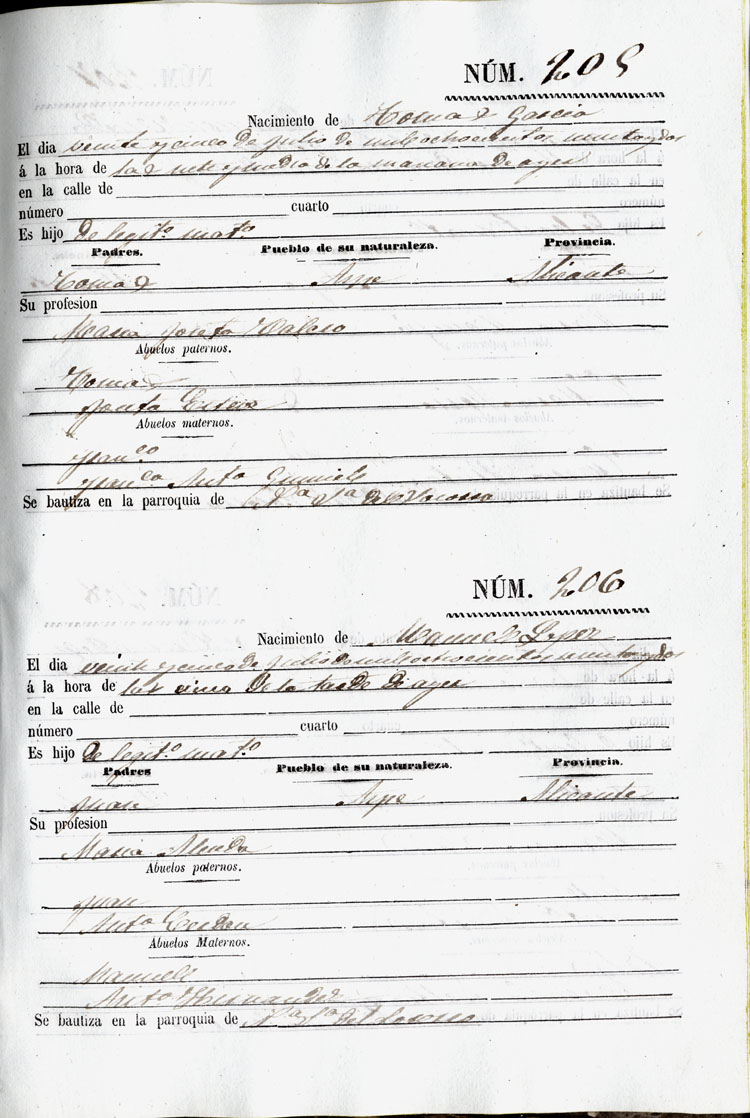 NÚM. 205
Nacimiento de Tomas Garcia
El dia veinte y cinco de Julio de mil ochocientos
á la hora de las siete y media de la mañana de ayer
en la calle de
número cuarto
Es hijo de legit.º mat.º
Padres. Pueblo de su naturaleza. Provincia.
Tomas Aspe Alicante
Su profesion
Maria Josefa
Abuelos paternos.
Tomas
Josefa
Abuelos maternos.
Fran.co
Fran.ca Ant.a
Se bautiza en la parroquia de N.a S.a del Socorro
NÚM. 206
Nacimiento de Manuel Lopez
El dia veinte y cinco de Julio de mil ochocientos
á la hora de las cinco de la tarde de ayer
en la calle de
número cuarto
Es hijo de legit.º mat.º
Padres Pueblo de su naturaleza. Provincia.
Juan Aspe Alicante
Su profesion
Maria
Abuelos paternos.
Juan
Ant.a Cerdan
Abuelos Maternos.
Manuel
Ant.a Hernandez
Se bautiza en la parroquia de N.a S.a del Socorro